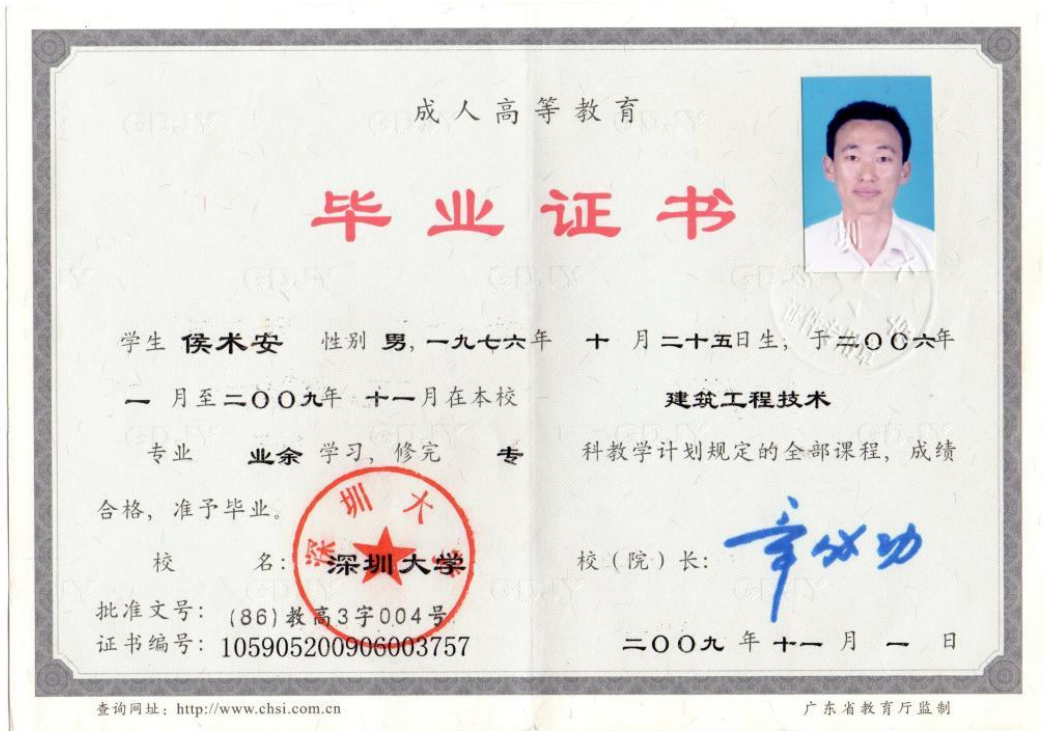 成人高等教育
毕业证书
学生 侯术安 性别 男，一九七六年 十 月二十五日生，于二〇〇六年
一 月至二〇〇九年 十一月在本校 建筑工程技术
专业 业余 学习，修完 专 科教学计划规定的全部课程，成绩
合格，准予毕业。
校 名：深圳大学 校（院）长：章必功
批准文号：(86)教高3字004号
证书编号：105905200906003757 二〇〇九 年 十一 月 一 日
查询网址：http://www.chsi.com.cn 广东省教育厅监制
深圳大学
GDJY